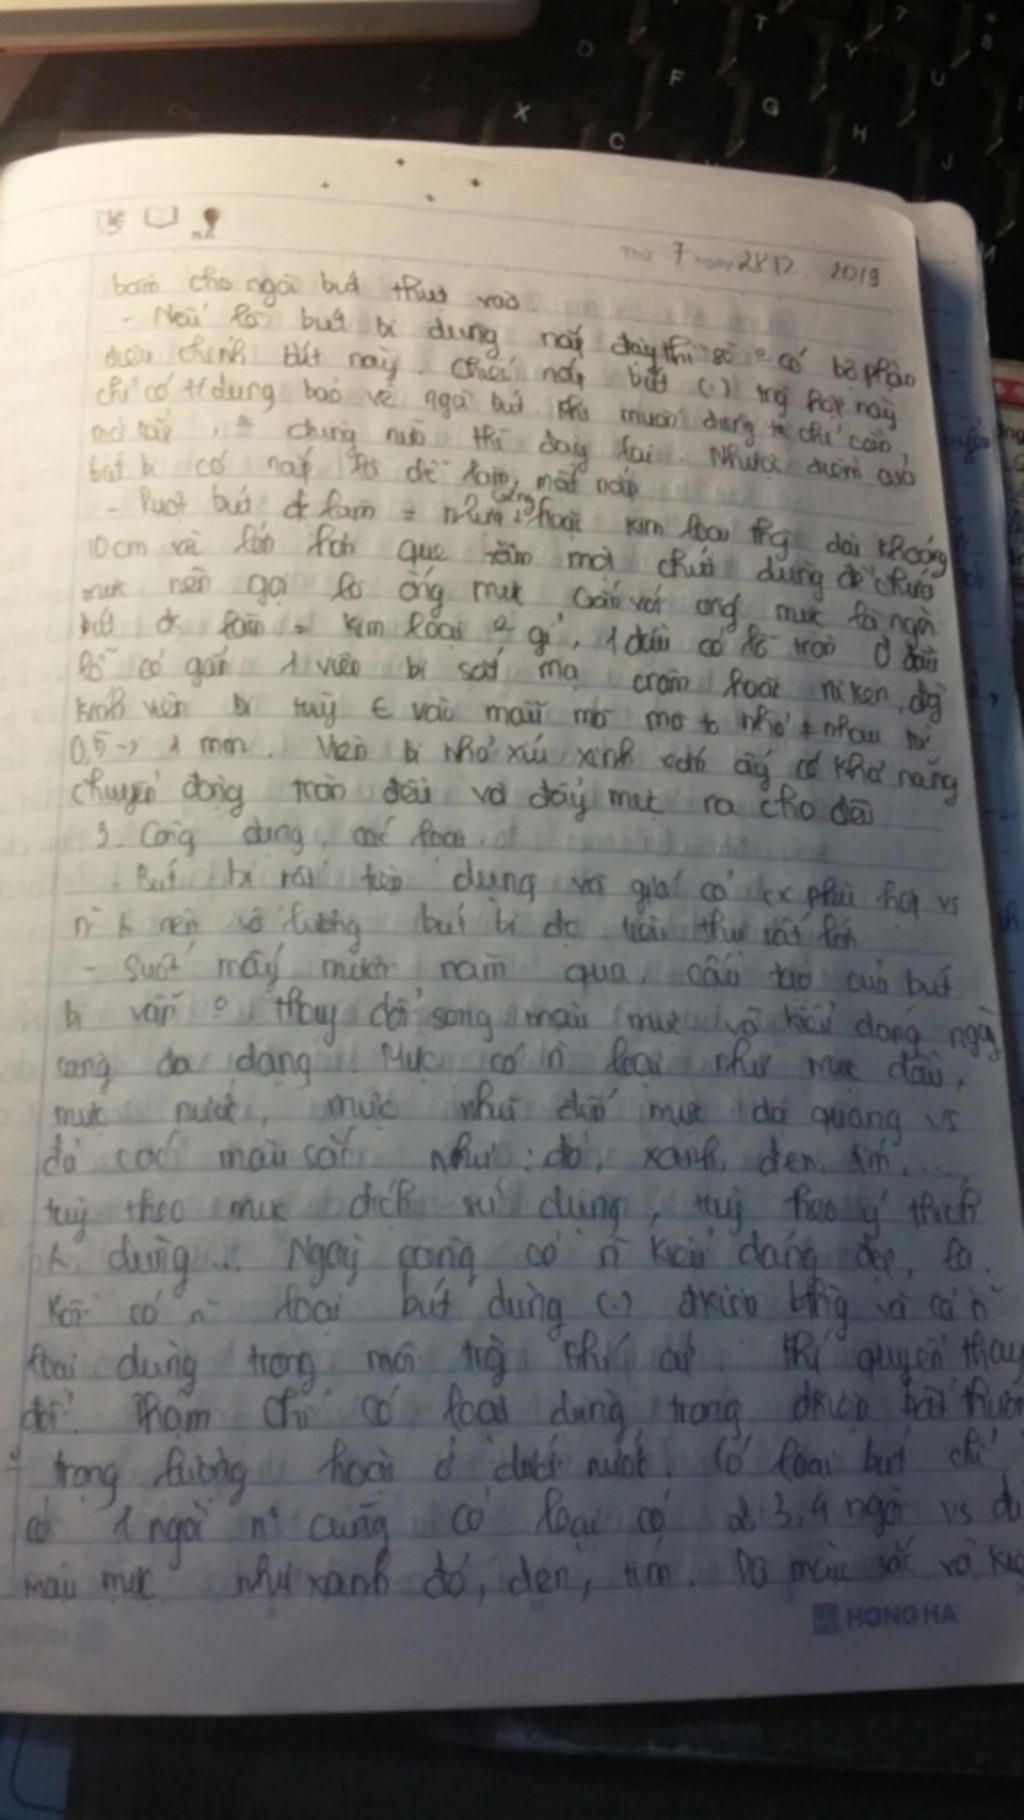 Thứ 7 ngày 28 12 2019
bấm cho ngòi bút thụt vào.
- Nếu là bút bi dùng nắp đậy thì sẽ o có bộ phận
điều chỉnh bút này. Chiếc nắp bút (.) trg hợp này
chỉ có t/dụng bảo vệ ngòi bút. Khi muốn dùng ta chỉ cần
mở nắp, o dùng nữa thì đậy lại. Nhược điểm của
bút bi có nắp là dễ làm mất nắp
- Ruột bút đc làm = nhựa cứng hoặc kim loại thg dài khoảng
10cm và lớn hơn que tăm một chút dùng để chứa
mực nên gọi là ống mực. Gắn với ống mực là ngòi
bút đc làm = kim loại o gỉ, 1 đầu có lỗ tròn. Ở đầu
lỗ có gắn 1 viên bi sắt mạ crôm hoặc niken, đg
kính viên bi tuỳ ∈ vào mẫu mã mà to nhỏ ≠ nhau từ
0,5 -> 1 mm. Viên bi nhỏ xíu xinh xắn ấy có khả năng
chuyển động tròn đều và đẩy mực ra cho đều
3. Công dụng, các loại.
- Bút bi rất tiện dụng và giá cả cx phù hợp vs
n` k nên số lượng bút bi đc tiêu thụ rất lớn
- Suốt mấy mươi năm qua, cấu tạo của bút
bi vẫn o thay đổi song màu mực và kiểu dáng ngày
càng đa dạng. Mực có n` loại như mực dầu,
mực nước, mực nhũ đến mực dạ quang vs
đủ các màu sắc như: đỏ, xanh, đen, tím, ...
tuỳ theo mục đích sử dụng, tuỳ theo ý thích
k dùng... Ngày càng có n` kiểu dáng đẹp, lạ.
Rồi có n` loại bút dùng (.) đkiện bthg và có n`
loại dùng trong môi trg khí áp khí quyển thay
đổi. Thậm chí có loại dùng trong đkiện bất thườn
trọng lượng hoặc ở dưới nước. Có loại bút chỉ
có 1 ngòi n` cũng có loại có 2, 3, 4 ngòi vs đủ
màu mực như xanh đỏ, đen, tím. màu sắc và kiể
HONG HA